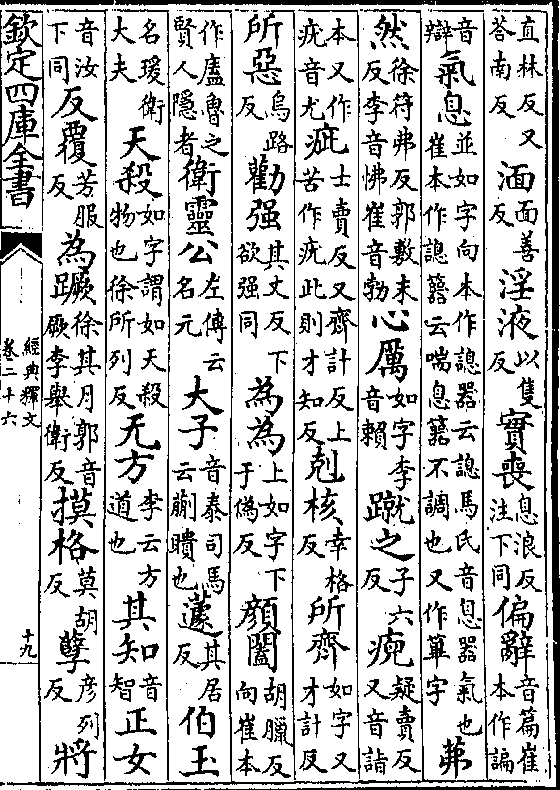 直林反又荅南反湎面善反淫液以隻反實喪息浪反注下同偏辭音篇崔本作諞
音辯氣息並如字向本作諰器云諰馬氏音息器氣也崔本作諰籌云喘息籌不調也又作篳字茀
然徐符弗反郭敷末反李音怫崔音勃心厲如字李音賴蹴之子六反疑賣反又音詣
本又作疣音尤疵士賣反又齊計反上苦作疣此則才知反剋核幸格反所齊如字又才計反
所惡烏路反勸强其丈反下欲强同為為上如字下于偽反顏闔胡臘反向崔本
作盧魯之賢人隱者衛靈公左傳云名元大子音泰司馬云蒯聵也蘧其居反伯玉
名瑗衛大夫天殺如字謂如天殺物也徐所列反无方李云方道也其知音智正女
音汝下同反覆芳服反為蹶徐其月郭音厥李舉衛反摸格莫胡反孽彦列反將
欽定四庫全書
經典釋文
卷二十六
十九